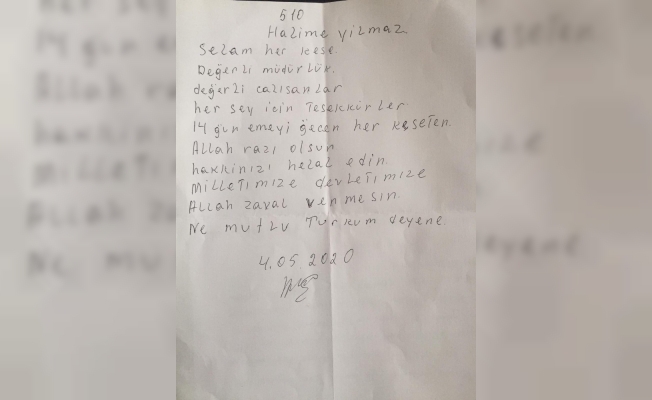 510
Halime yilmaz
Selam her kese.
Değerli müdürlük.
değerli calısanlar
her sey icin Tesekkürler.
14 gün emeyi gecen her keseten.
Allah razı olsun
hakkinizi helal edin.
milletimize devletimize
Allah zaval vermesin.
Ne mutlu Turkum deyene.
4.05.2020